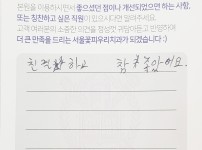 본원을 이용하시면서 좋으셨던 점이나 개선되었으면 하는 사항,
또는 칭찬하고 싶은 직원이 있으시다면 말씀해주세요.
고객 여러분의 소중한 의견을 절성껏 귀담아듣고 반영하여
더 큰 만족을 드리는 서울꽃피우리치과가 되겠습니다 :)
친절하고 참 좋았어요.